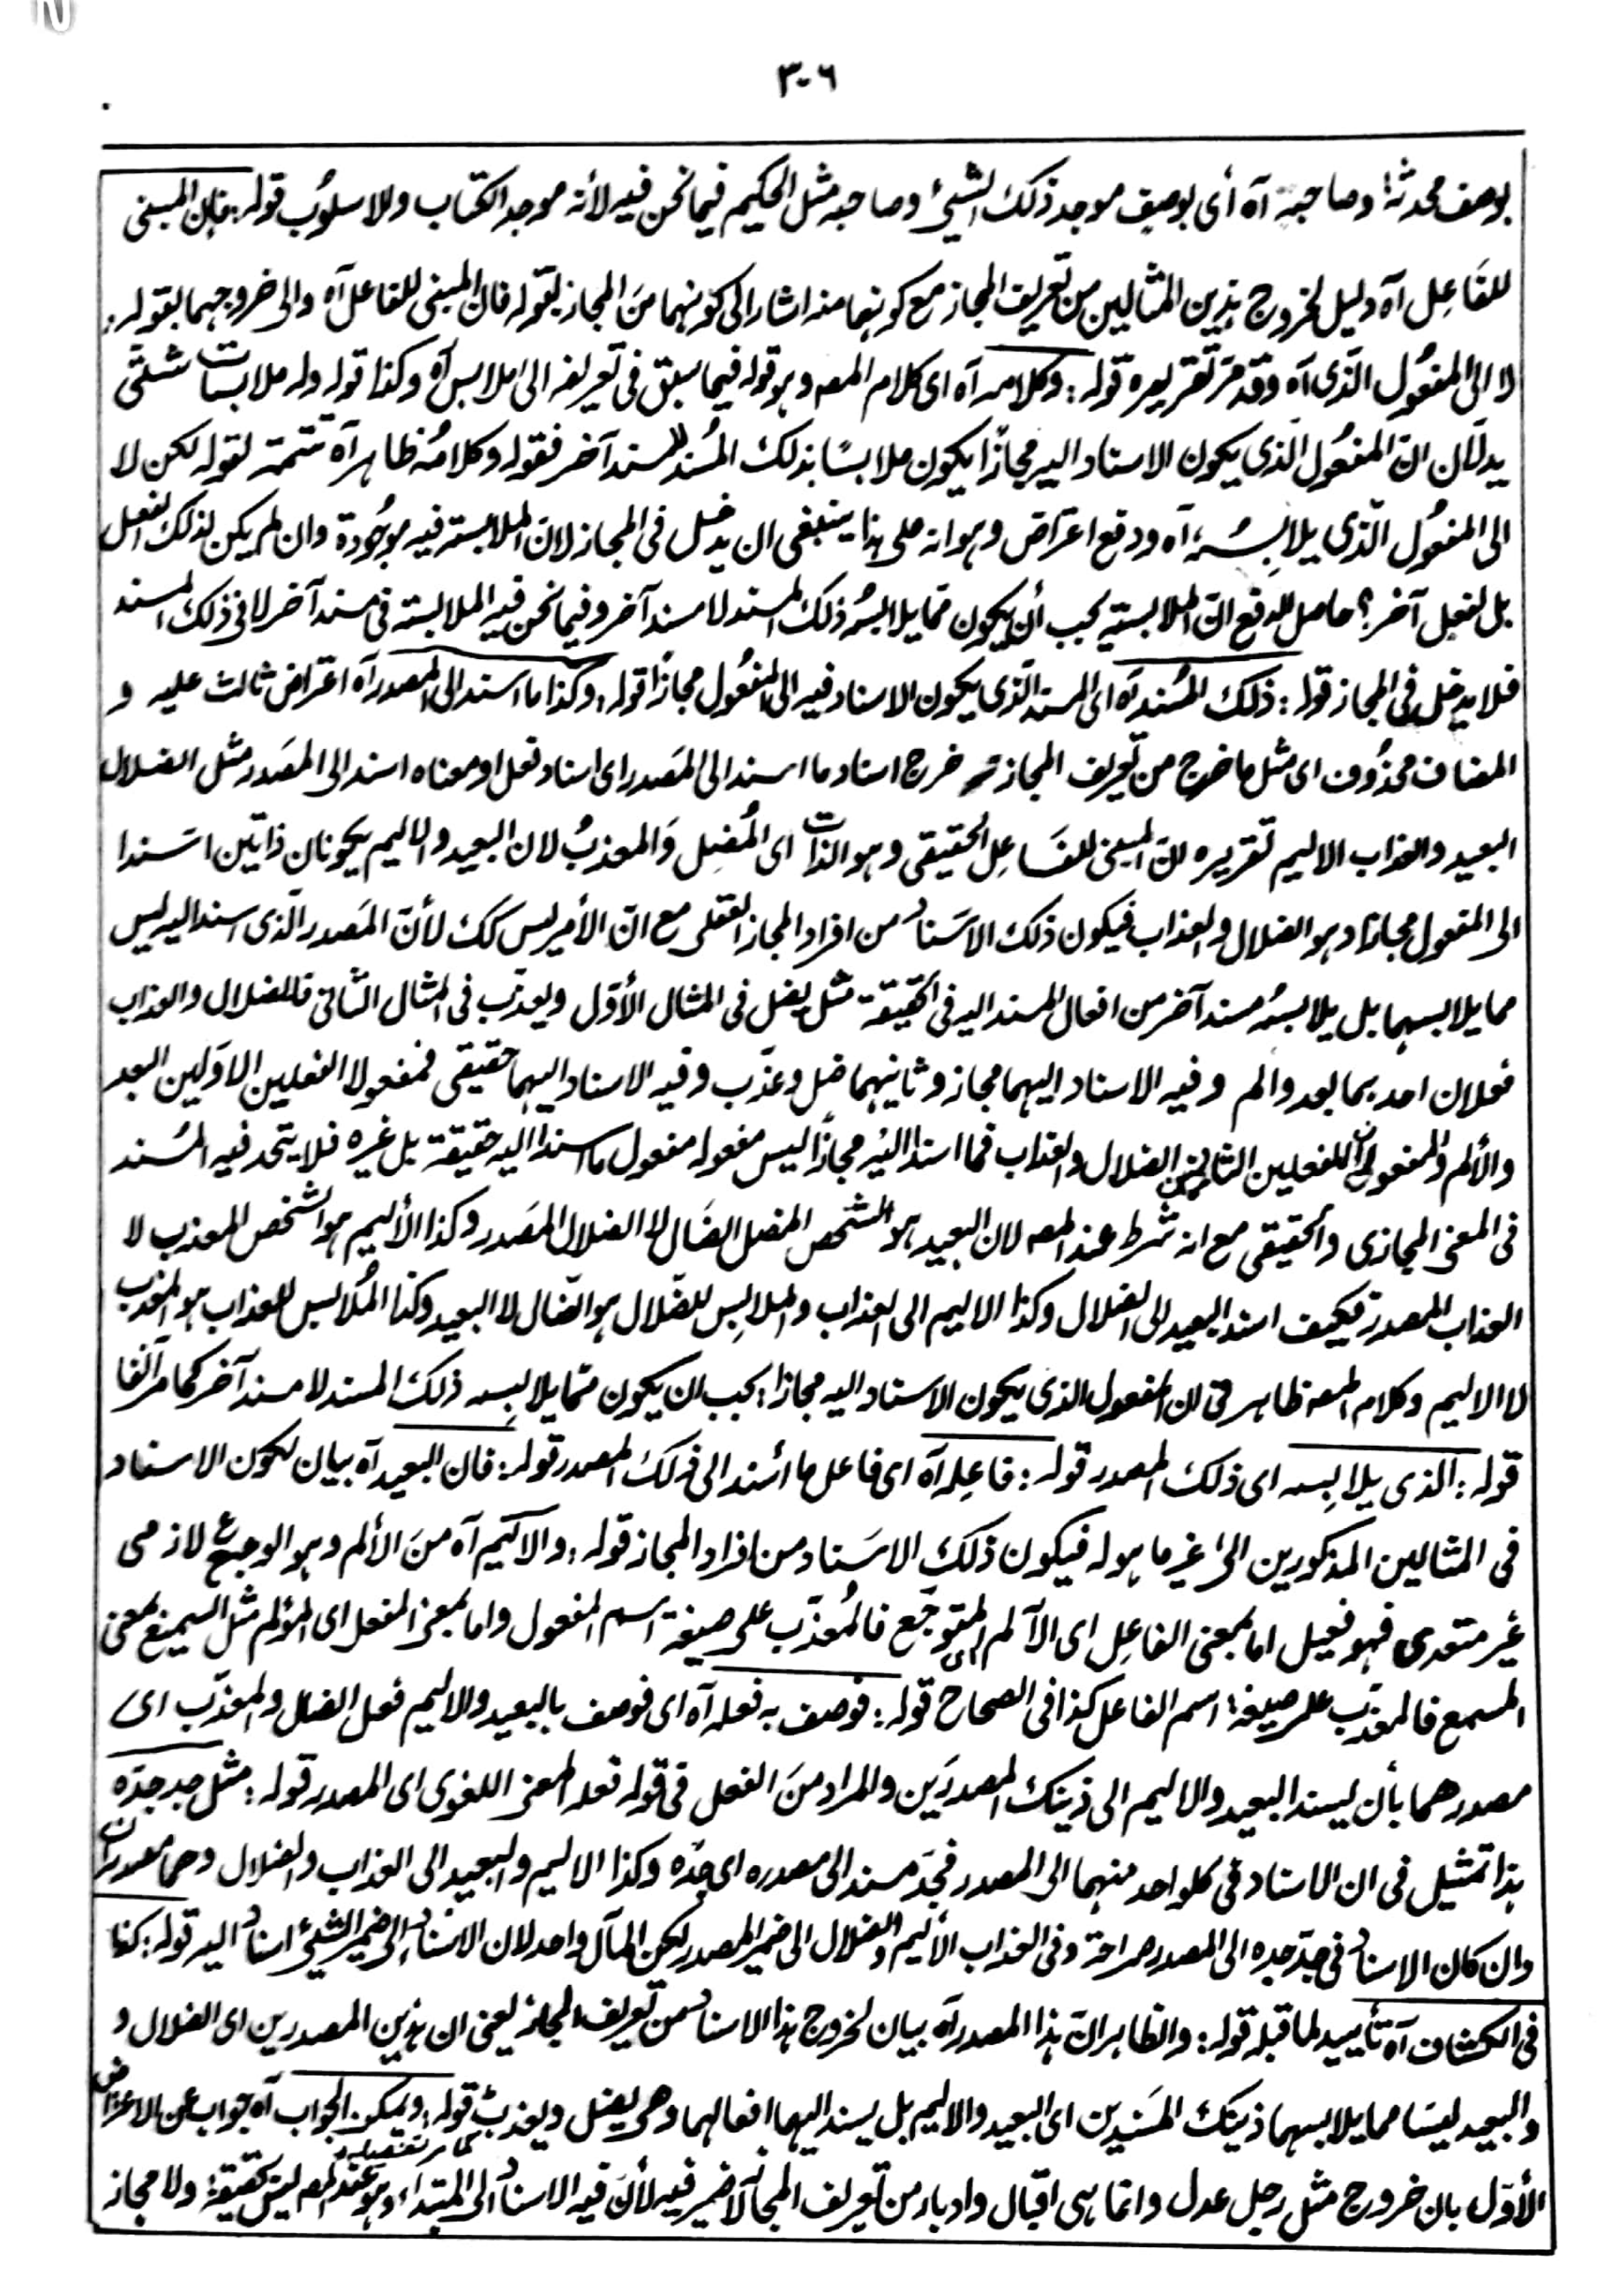 ٣٠٦
بوصف محدثه وصاحبه آه أى بوصف موجد ذلك الشيئ وصاحبه مثل الحكيم فيما نحن فيه لأنه موجد الكتاب وللاسلوُب قوله: فان المبنى
للفَاعِل آه دليل لخروج هذين المثالين من تعريف المجاز مع كونهما منه اشار الى كونهما منَ المجاز بقوله فان المبنى للفاعل آه والى خروجهما بقوله:
لا الى المفعُول الّذى آه وقد مرّ تقريره قوله: وكلامه آه اى كلام المصه وهو قوله فيما سبق فى تعريفه الى ملابس آه وكذا قوله وله ملابسات شتّى
يدلّان انّ المفعُول الّذى يكون الاسناد اليه مجازًا يكون ملابسًا بذلك المُسند لا لمسند آخر فقوله وكلامُه ظاهر آه تتمة لقوله لكن لا
الى المفعُول الّذى يلابِسُه، آه ودفع اعتراض وهو انه على هذا ينبغى ان يدخل فى المجاز لانّ الملابسته فيه موجُودة وان لم يكن لذلك الفعل
بل لفعل آخر؟ حاصل الدفع انّ الملابسته يجب أن يكون ممّا يلابسُه ذلك المسند لا مسند آخر وفيما نحن فيه الملابسته فى مسند آخر لا فى ذلك المسند
فلا يدخل فى المجاز قوله: ذلك المُسند آه اى المسند الّذى يكون الاسناد فيه الى المفعُول مجازًا قوله: وكذا ما اسند الى المصدر آه اعتراض ثالث عليه و
المضاف محذُوف اى مثل ما خرج من تعريف المجاز خرج اسناد ما اسند الى المَصدر اى اسناد فعل او معناه اسند الى المَصدر مثل الضلال
البعيد والعذاب الاليم تقريره انّ المبنى للفَاعِل الحقيقى وهو الذات اى المُضِل وَالمعذبُ لان البعيد والاليم يكونان ذاتين اسَندا
الى المفعول مجازًا وهو الضلال والعذاب فيكون ذلك الاسَنادُ من افراد المجاز العقلى مع انّ الأمر ليس كك لأنّ المَصدر الّذى اسند اليه ليس
مما يلابسهما بل يلابسُه مسند آخر من افعال المسند اليه فى الحقيقة مثل يضل فى المثال الأوّل ويعذّب فى المثال الثّانى فالضلال والعذاب
فعلان احدهما بعد والم وفيه الاسناد اليهما مجاز وثانيهما ضل وعذّب وفيه الاسناد اليهما حقيقى فمفعولا الفعلين الاوّلين البعد
والألم والمفعولان للفعلين الثانيين الضلال والعذاب فما اسند اليْه مجازًا ليس مفعوله مفعول ما اسند اليه حقيقة بل غيره فلا يتحد فيه المُسند
فى المعنى المجازى والحقيقى مع انه شرط عند المصه لان البعيد هو الشخص المضل الضَال لا الضلال المَصدر وكذا الأليم هو الشخص المعذب لا
العذاب المصدر فكيف اسند البعيد الى الضلال وكذا الاليم الى العذاب والملابِس للضّلال هو الضّال لا البعيد وكذا المُلابس للعذاب هو المعذب
لا الاليم وكلام المصه ظاهر فى ان المفعول الذى يكون الاسناد اليه مجازا: يجب ان يكون ممّا يلابِسه ذلك المسند لا مسند آخر كما مر آنفا
قوله: الذى يلابِسه اى ذلك المصدر قوله: فاعِله آه اى فاعل ما اُسند الى ذلكَ المصدر قوله: فان البعيد آه بيان لكون الاسناد
فى المثالين المذكورين الى غير ما هو له فيكون ذلك الاسَناد من افراد المجاز قوله: والاليم آه منَ الألم وهو الوجع لازمى
غير متعدى فهو فعيل اما بمعنى الفاعِل اى الآلم اى المتوجّع فالمُعذّب على صيغة اسم المفعول واما بمعنى المفعل اى المؤلم مثل السميع بمعنى
المسمع فالمعذّب على صيغة اسم الفاعل كذا فى الصحاح قوله: فوصف به فعله آه اى فوصف بالبعيد والاليم فعل الضال والمعذّب اى
مصدرهما بأن ليسند البعيد والاليم الى ذينك المصدرَين والمراد منَ الفعل فى قوله فعله المعنى اللغوى اى المصدر قوله: مثل جد جدّه
هذا تمثيل فى ان الاسناد فى كلواحد منهما الى المصدر فجدّ مسند الى مصدره اى جدّه وكذا الاليم والبعيد الى العذاب والضلال وهما مصدران
وان كان الاسنادُ فى جدّ جده الى المصدر صراحة وفى العذاب الأليم والضلال الى ضمير المصدر لكن المآل واحد لان الاسنادُ الى ضمير الشيئ اسنادُ اليه قوله: كذا
فى الكشاف آه تأييد لما قبله قوله: والظاهر انّ هذا المصدر آه بيان لخروج هذا الاسنادُ من تعريف المجاز يعنى ان هذين المصدرين اى الضلال و
والبعيد ليسَا مما يلابسهما ذينك المسَندين اى البعيد والاليم بل يسند اليهما افعالهما وهى يضل ويعذبُ قوله: ويمكن الجواب آه جواب عن الاعتراض
الأوّل بان خروج مثل رجل عدل وانما هى اقبال وادبار من تعريف المجاز لا ضير فيه لأنَ فيه الاسنادُ الى المبتداء وهو عند المصه ليس حقيقة ولا مجاز
كما مر تفصيله